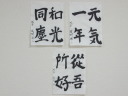 元氣
一年
和光
同塵
從吾
所好